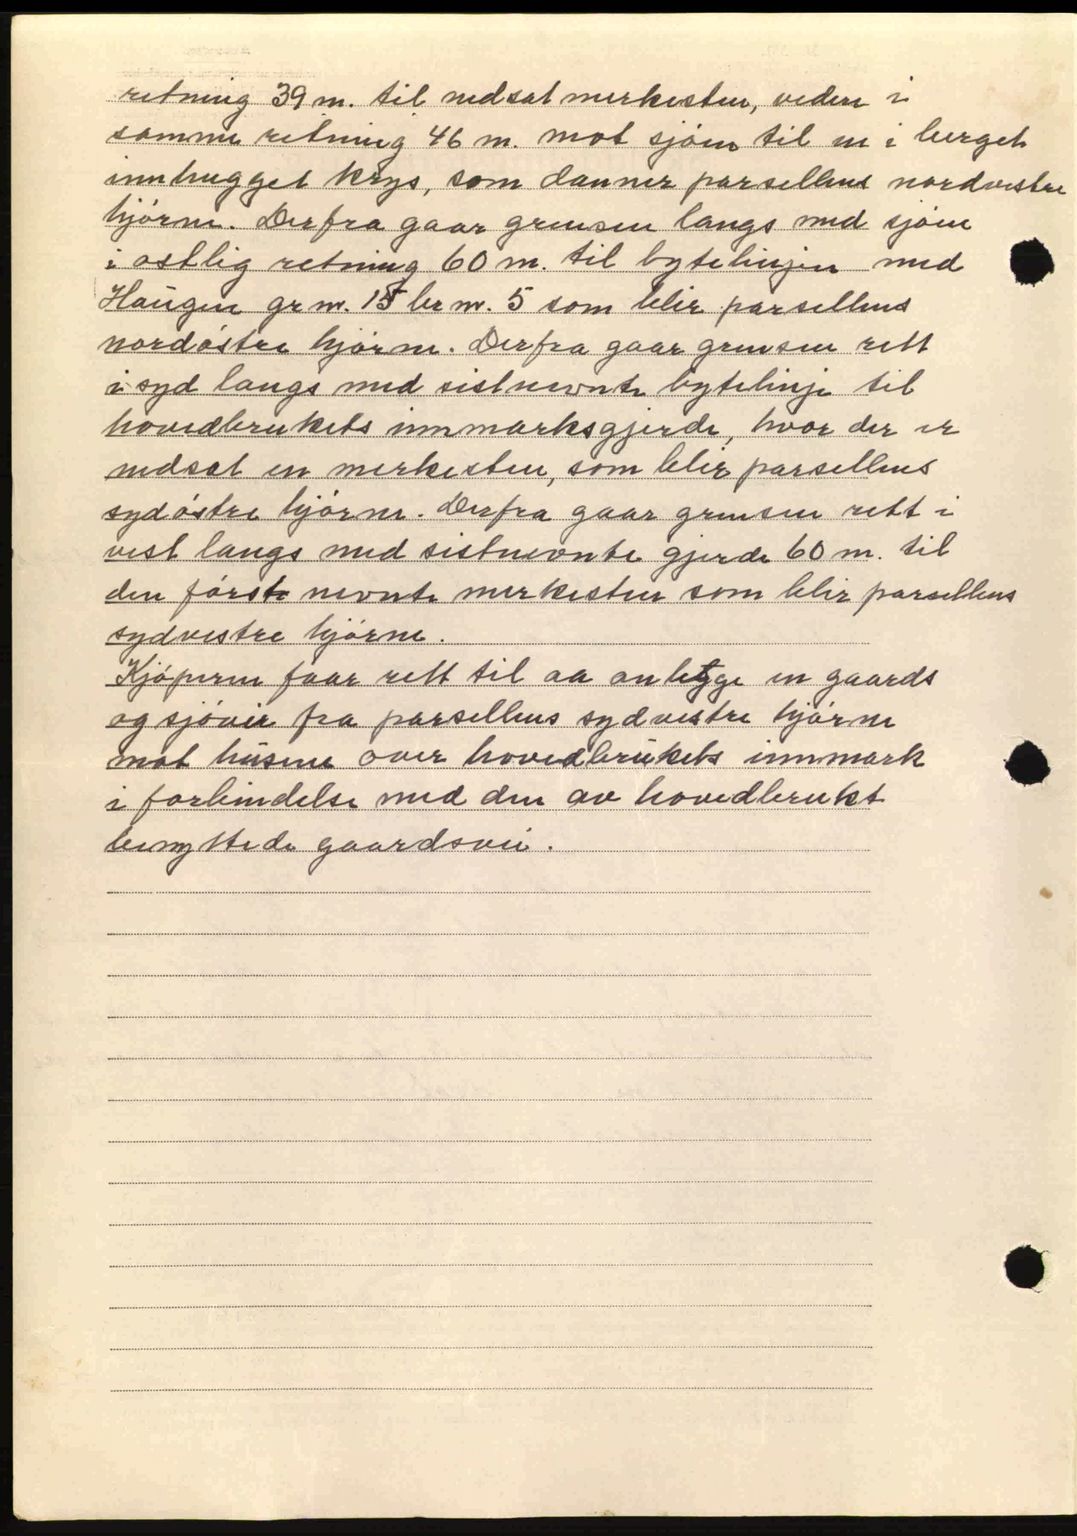 retning 39 m. til nedsat merkesten, videre i
samme retning 46 m. mot sjóen til en i berget
innhugget krys, som danner parsellens nordvestre
hjórne. Derfra gaar grensen langs med sjóen
i ostlig retning 60 m. til bytelinjen med
Haugen gr nr. 15 br nr. 5 som blir parsellens
nordóstre hjórne. Derfra gaar grensen rett
i syd langs med sistnevnte bytelinje til
hovedbrukets innmarksgjerde, hvor der er
nedsat en merkesten, som blir parsellens
sydóstre hjórne. Derfra gaar grensen rett i
vest langs med sistnevnte gjerde 60 m. til
den fórst nevnte merkesten som blir parsellens
sydvestre hjórne.
Kjóperen faar rett til aa anlegge en gaards
og sjóvei fra parsellens sydvestre hjórne
mot husene over hovedbrukets innmark
i forbindelse med den av hovedbruket
benyttede gaardsvei.